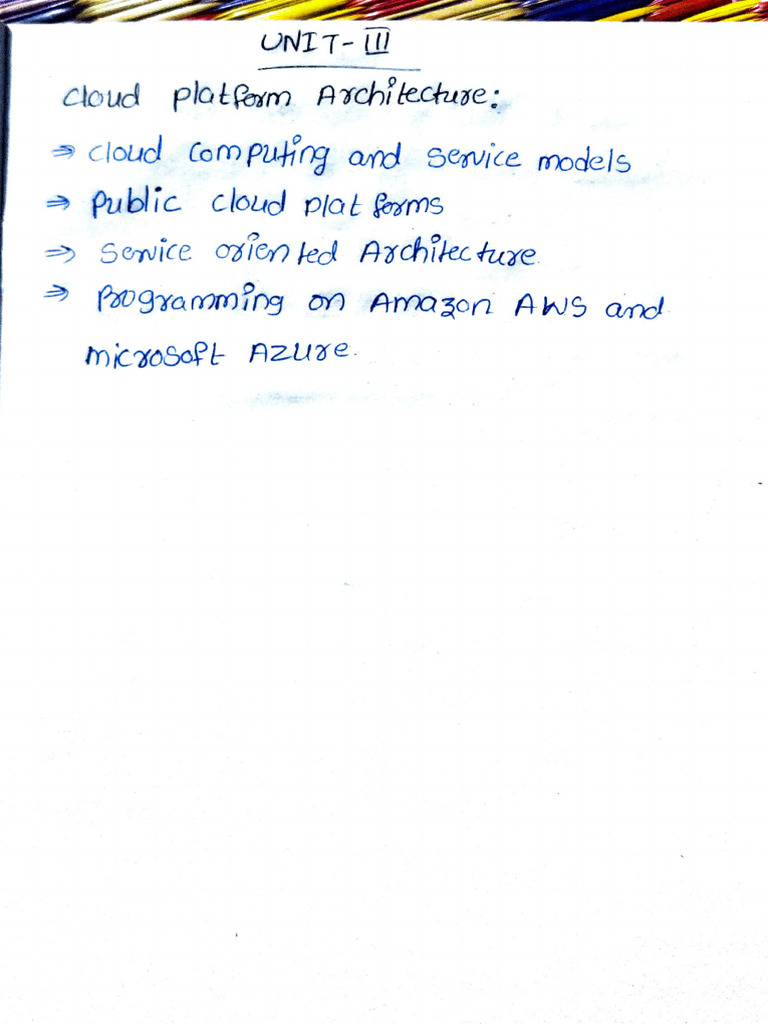 UNIT-III
Cloud Platform Architecture:
⇒ Cloud Computing and Service models
⇒ Public cloud platforms
⇒ Service oriented Architecture.
⇒ Programming on Amazon AWS and
microsoft Azure.